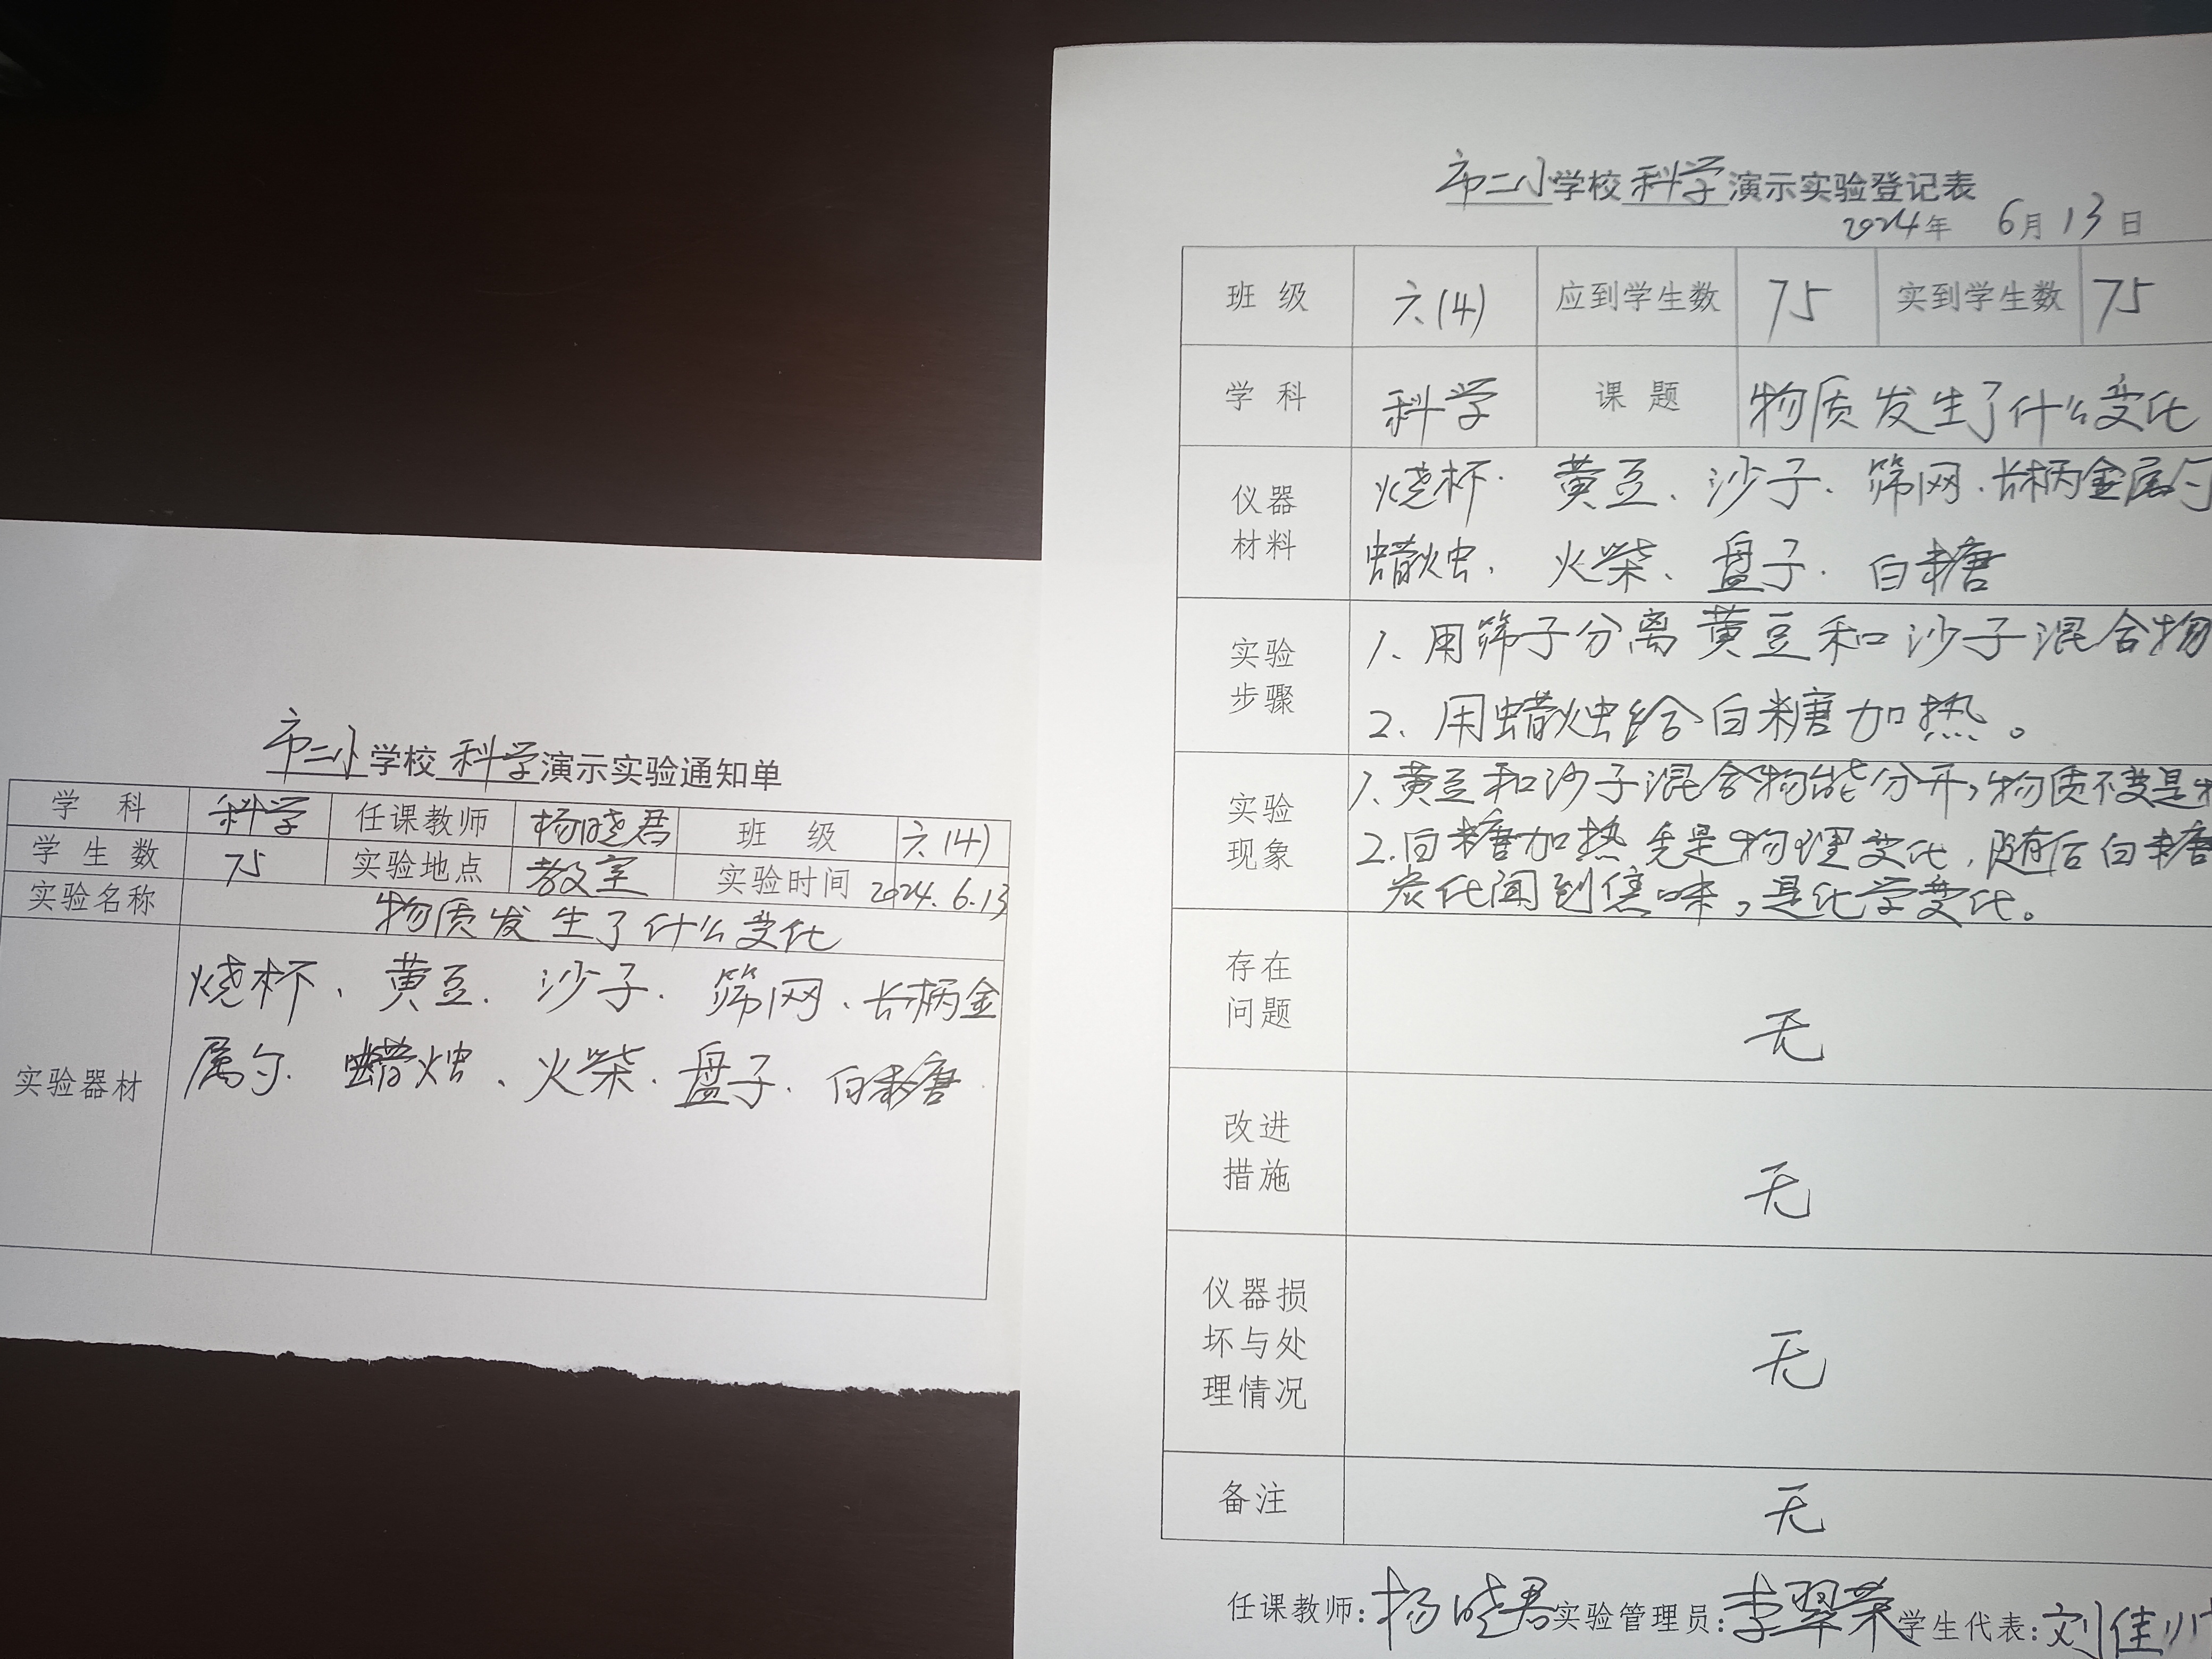 市二小学校科学演示实验通知单
学科 科学 任课教师 杨晓君 班级 六(4)
学生数 75 实验地点 教室 实验时间 2024.6.13
实验名称 物质发生了什么变化
实验器材 烧杯、黄豆、沙子、筛网、长柄金
属勺、蜡烛、火柴、盘子、白糖
市二小学校科学演示实验登记表
2024年 6月13日
班级 六(4) 应到学生数 75 实到学生数 75
学科 科学 课题 物质发生了什么变化
仪器
材料
烧杯、黄豆、沙子、筛网、长柄金属勺
蜡烛、火柴、盘子、白糖
实验
步骤
1、用筛子分离黄豆和沙子混合物
2、用蜡烛给白糖加热。
实验
现象
1、黄豆和沙子混合物能分开,物质不变是
2、白糖加热先是物理变化,随后白糖
炭化闻到焦味,是化学变化。
存在
问题
无
改进
措施
无
仪器损
坏与处
理情况
无
备注 无
任课教师:杨晓君 实验管理员:李翠荣 学生代表:刘佳